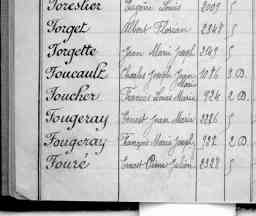 Forestier Eugène Louis 2009 S
Forget Albert Florian 2348 S
Forgette Jean Marie Joseph 2149 S
Foucault Charles Joseph Jean Marie 1086 3 D.
Foucher Francis Louis Marie 924 2 D.
Fougeray Ernest Jean Marie 3226 S
Fougeray François Marie Joseph 982 2 D.
Fouré Ernest Pierre Julien 2328 S